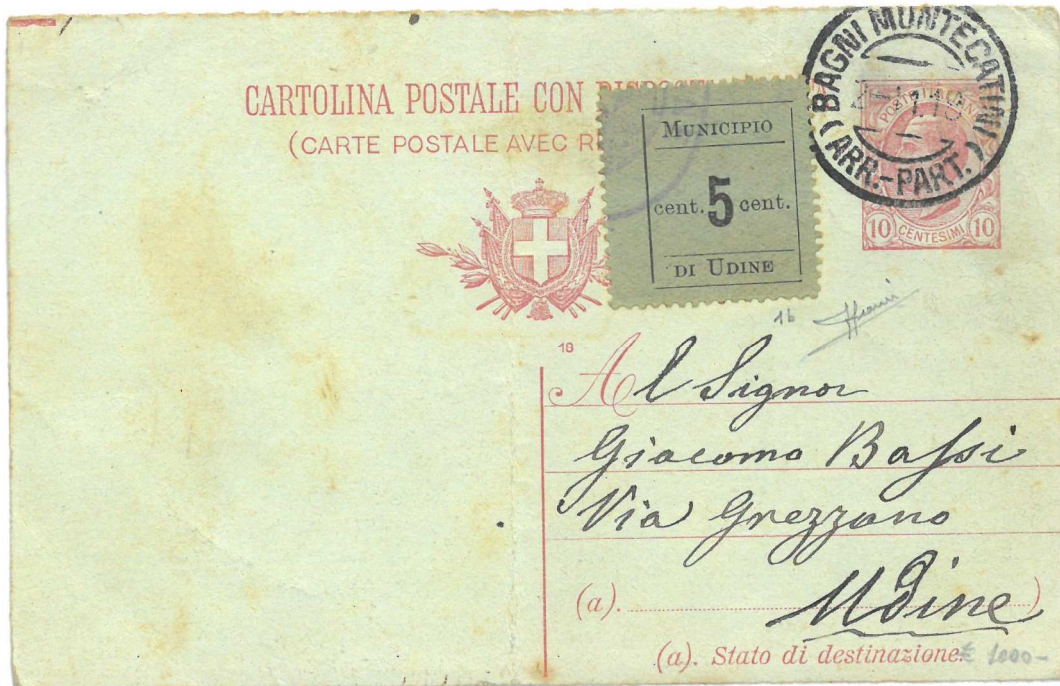 CARTOLINA POSTALE CON
(CARTE POSTALE AVEC
MUNICIPIO
cent. 5 cent.
DI UDINE
BAGNI MONTECATINI
(ARR.-PART.)
10 CENTESIMI 10
1b
18
Al Signor
Giacomo Bassi
Via Grezzano
(a). Udine)
(a). Stato di destinazione.
€ 1000-